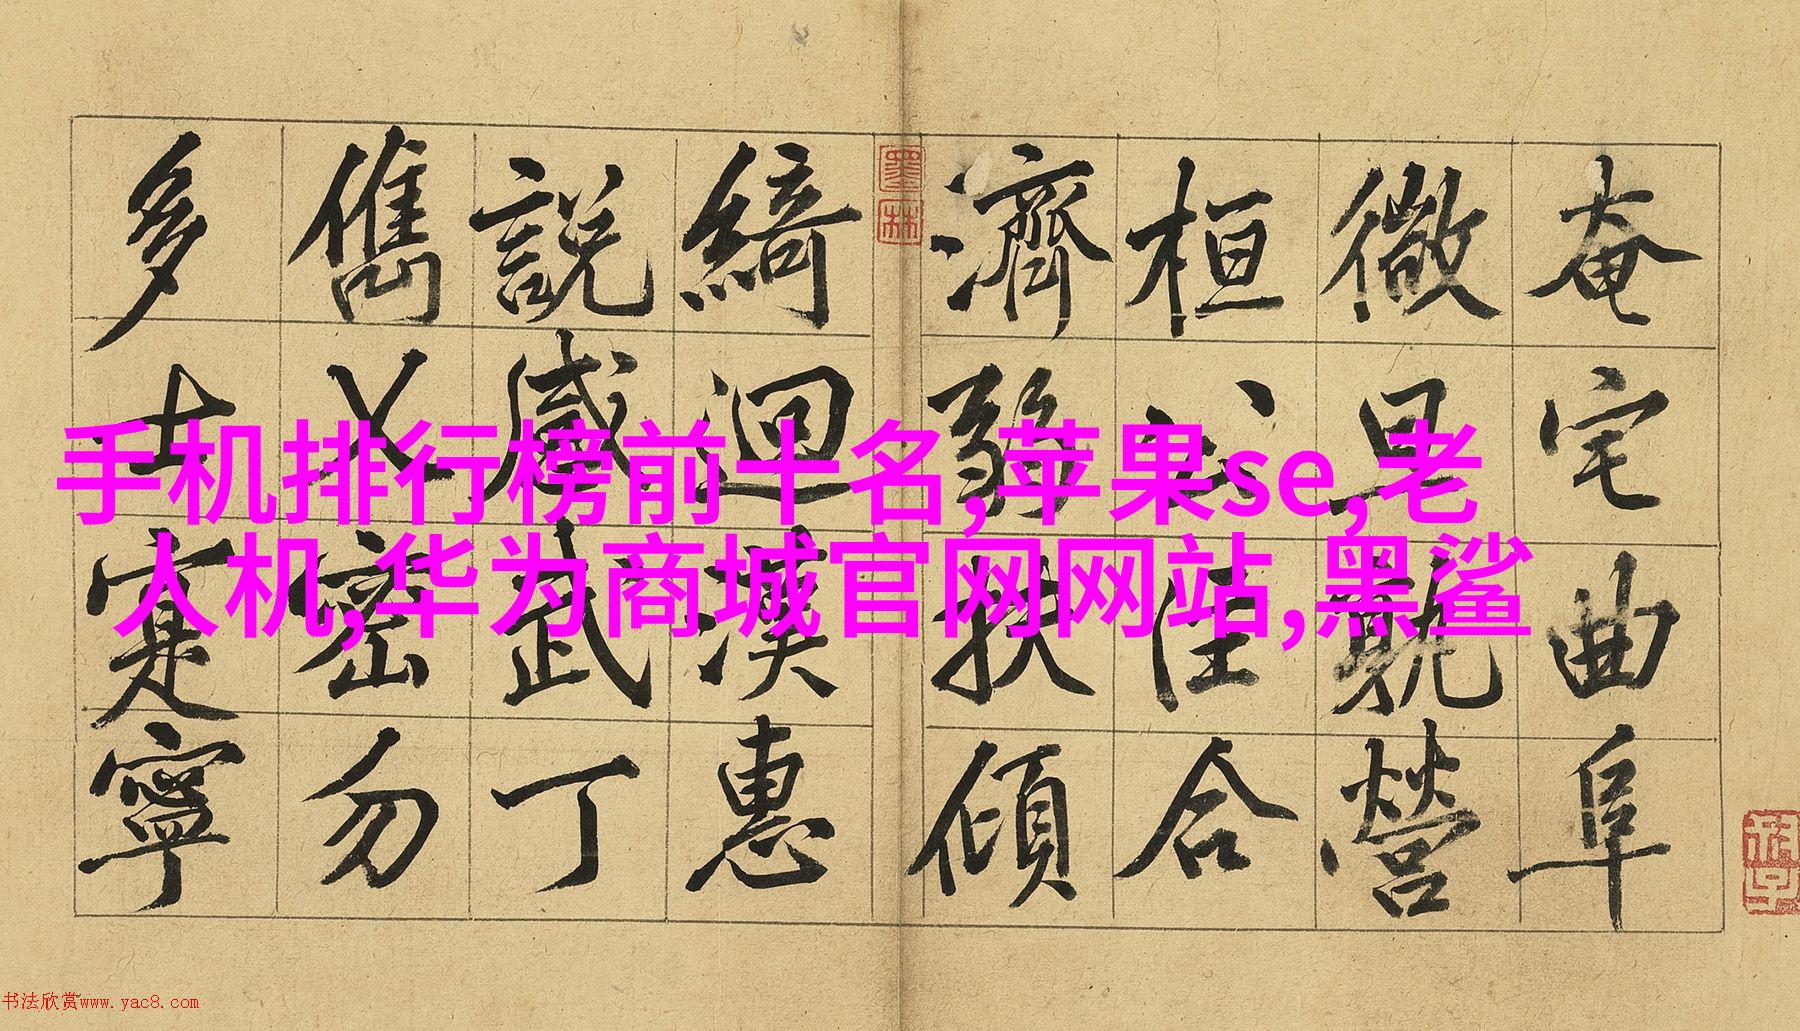 奄宅曲阜
微旦孰營
桓公匡合
濟弱扶傾
綺迴漢惠
說感武丁
儁乂密勿
多士寔寧
墨林
手机排行榜前十名,苹果se,老
人机,华为商城官网网站,黑鲨
书法欣赏www.yac8.com